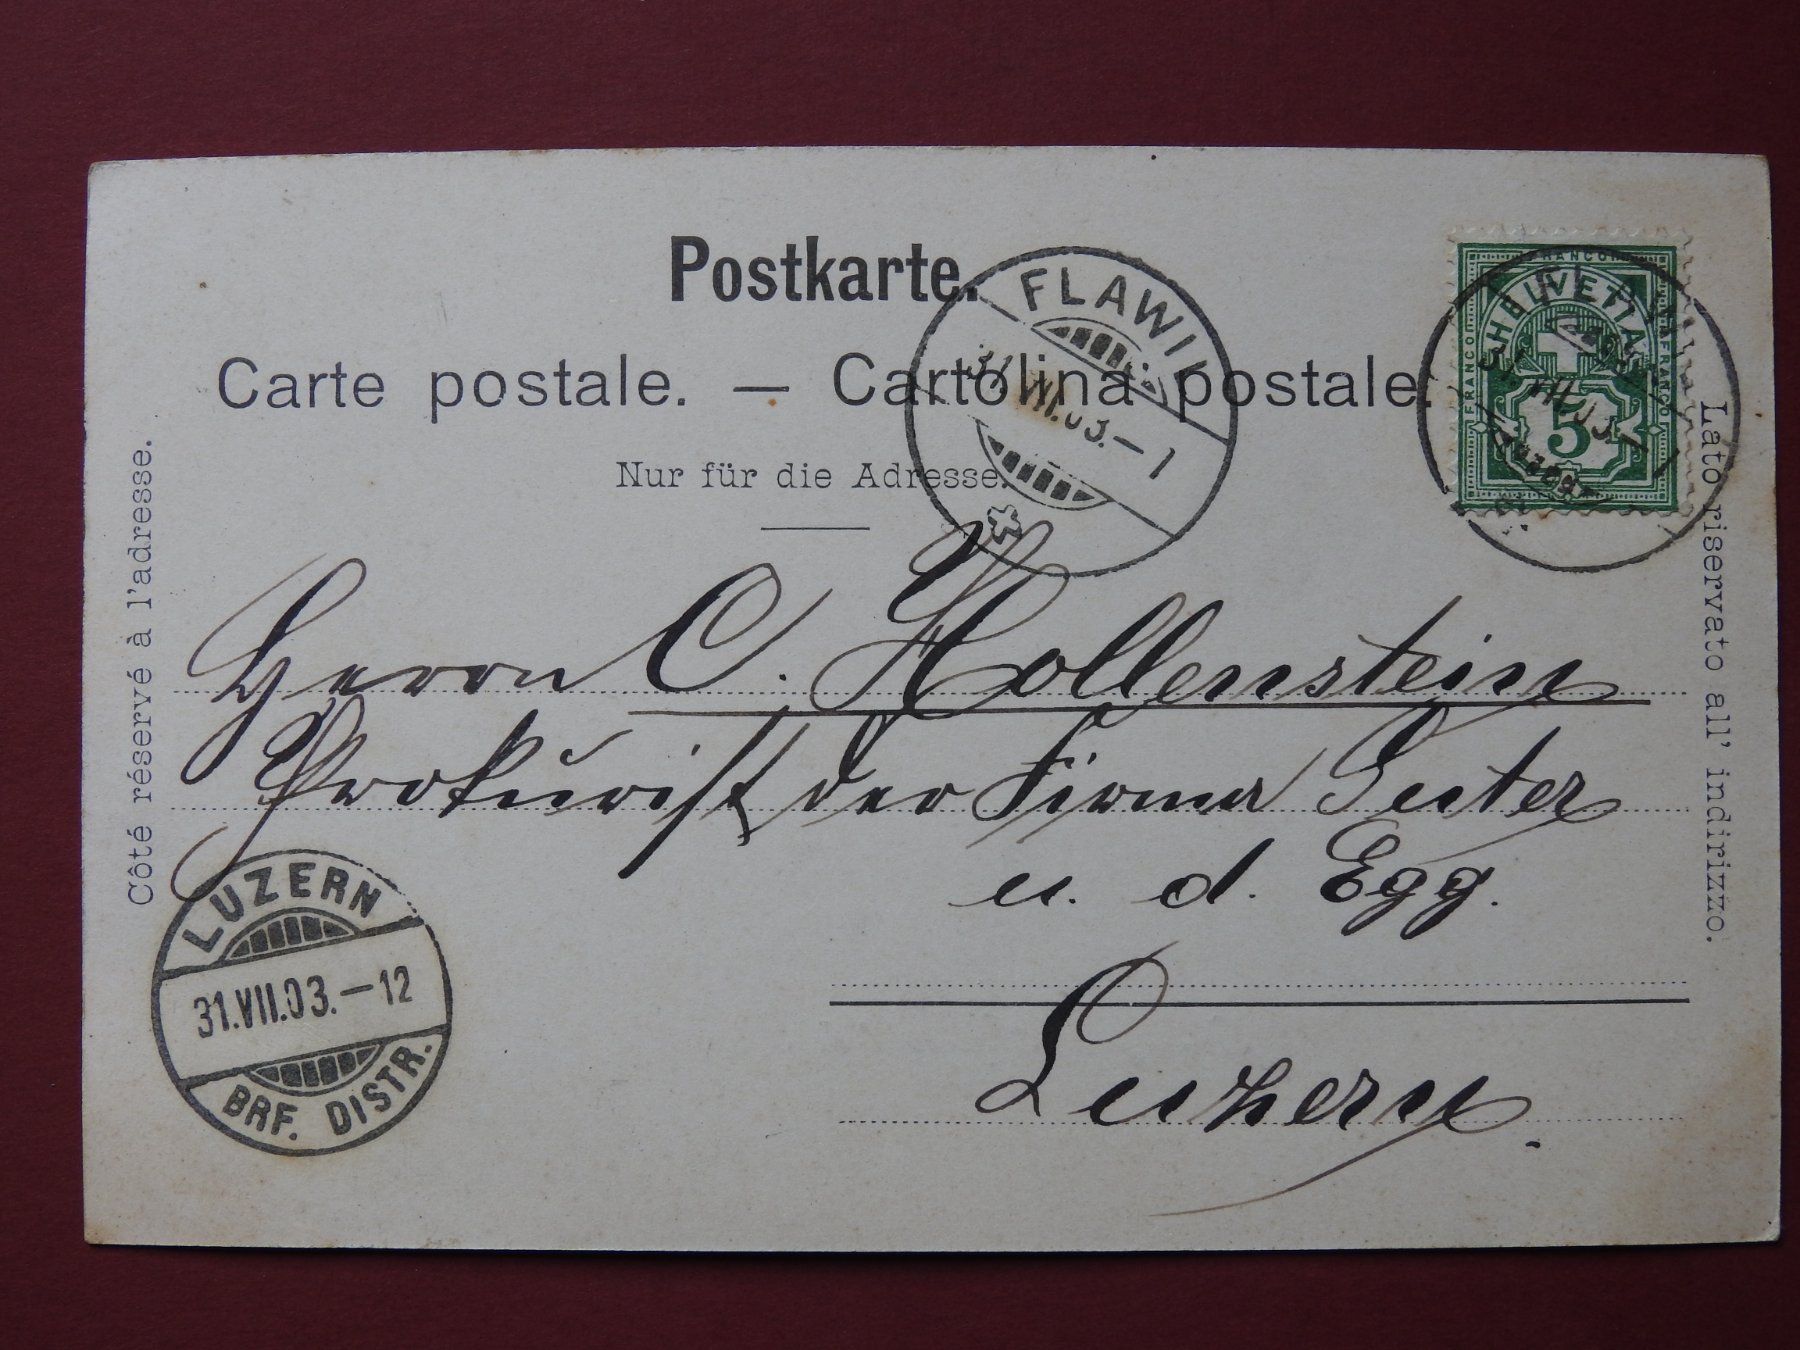 Postkarte.
Carte postale. — Cartolina postale.
Nur für die Adresse.
Côté réservé à l'adresse.
Lato riservato all' indirizzo.
FLAWIL
31.VII.03.—1
FRANCO
HELVETIA
FRANCO
FRANCO
5
31.VII.03.—1
Herrn C. Hollenstein
Prokurist der Firma Suter
u. d. Egg.
Luzern.
LUZERN
31.VII.03.—12
BRF. DISTR.